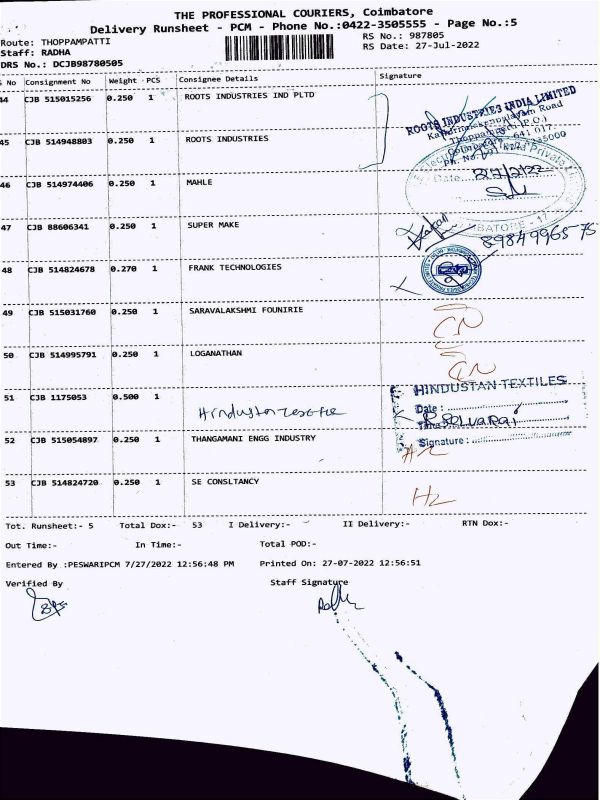 THE PROFESSIONAL COURIERS, Coimbatore
Delivery Runsheet - PCM - Phone No.:0422-3505555 - Page No.:5
Route: THOPPAMPATTI
RS No.: 987805
Staff: RADHA
RS Date: 27-Jul-2022
DRS No.: DCJB98780505
S No Consignment No Weight PCS Consignee Details Signature
44 CJB 515015256 0.250 1 ROOTS INDUSTRIES IND PLTD
ROOTS INDUSTRIES INDIA LIMITED
45 CJB 514948803 0.250 1 ROOTS INDUSTRIES
46 CJB 514974406 0.250 1 MAHLE
Date
47 CJB 88606341 0.250 1 SUPER MAKE
48 CJB 514824678 0.270 1 FRANK TECHNOLOGIES
49 CJB 515031760 0.250 1 SARAVALAKSHMI FOUNIRIE
50 CJB 514995791 0.250 1 LOGANATHAN
51 CJB 1175053 0.500 1
HINDUSTAN TEXTILES
Date :
Signature :
52 CJB 515054897 0.250 1 THANGAMANI ENGG INDUSTRY
53 CJB 514824720 0.250 1 SE CONSLTANCY
Tot. Runsheet:- 5 Total Dox:- 53 I Delivery:- II Delivery:- RTN Dox:-
Out Time:- In Time:- Total POD:-
Entered By :PESWARIPCM 7/27/2022 12:56:48 PM Printed On: 27-07-2022 12:56:51
Verified By Staff Signature